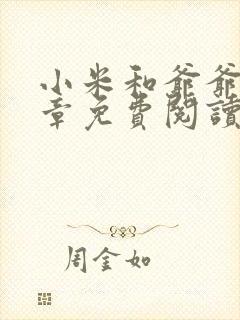 小米和爺爺
章免費閱讀
周金如